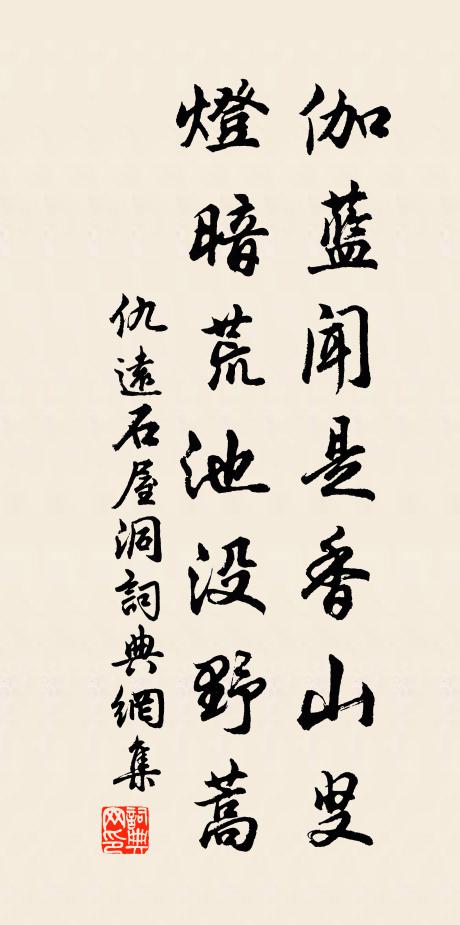 伽藍闻是香山叟
燈暗荒池没野蒿
仇遠石屋洞詞典網集
詞典
网印